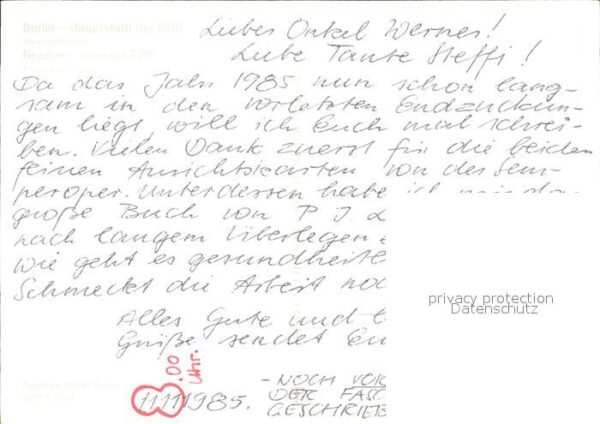 Berlin - Hauptstadt der DDR
Lieber Onkel Werner!
Liebe Tante Steffi!
Da das Jahr 1985 nun schon lang-
sam in den vorletzten Endzuckun-
gen liegt, will ich Euch mal schrei-
ben. Vielen Dank zuerst für die beiden
feinen Ansichtskarten von der Sem-
peroper. Unterdessen habe ich
große Buch von P. J.
nach langem Überlegen
Wie geht es gesundheitl
Schmeckt die Arbeit noc
Alles Gute und
Grüße sendet Eu
11.11.1985.
.00 Uhr.
- NOCH VOR
DER FASC
GESCHRIEB
privacy protection
Datenschutz